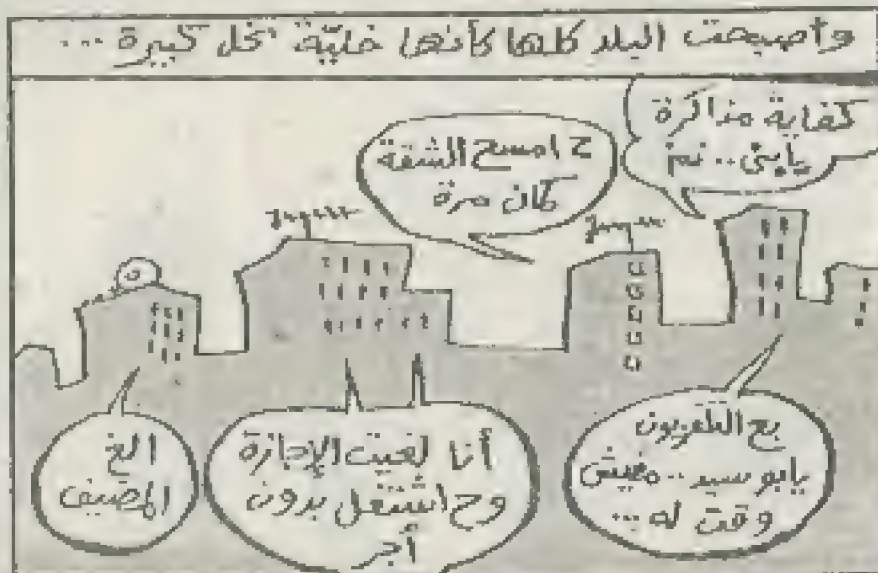 وأصبحت البلد كلها كأنها خليّة نحل كبيرة ...
كفاية مذاكرة
يابنى .. نم
ح امسح الشقة
كمان مرة
بع التلفزيون
يابو سيد .. مفيش
وقت له ...
أنا لغيت الإجازة
وح اشتغل بدون
أجر
الغ
المصيف